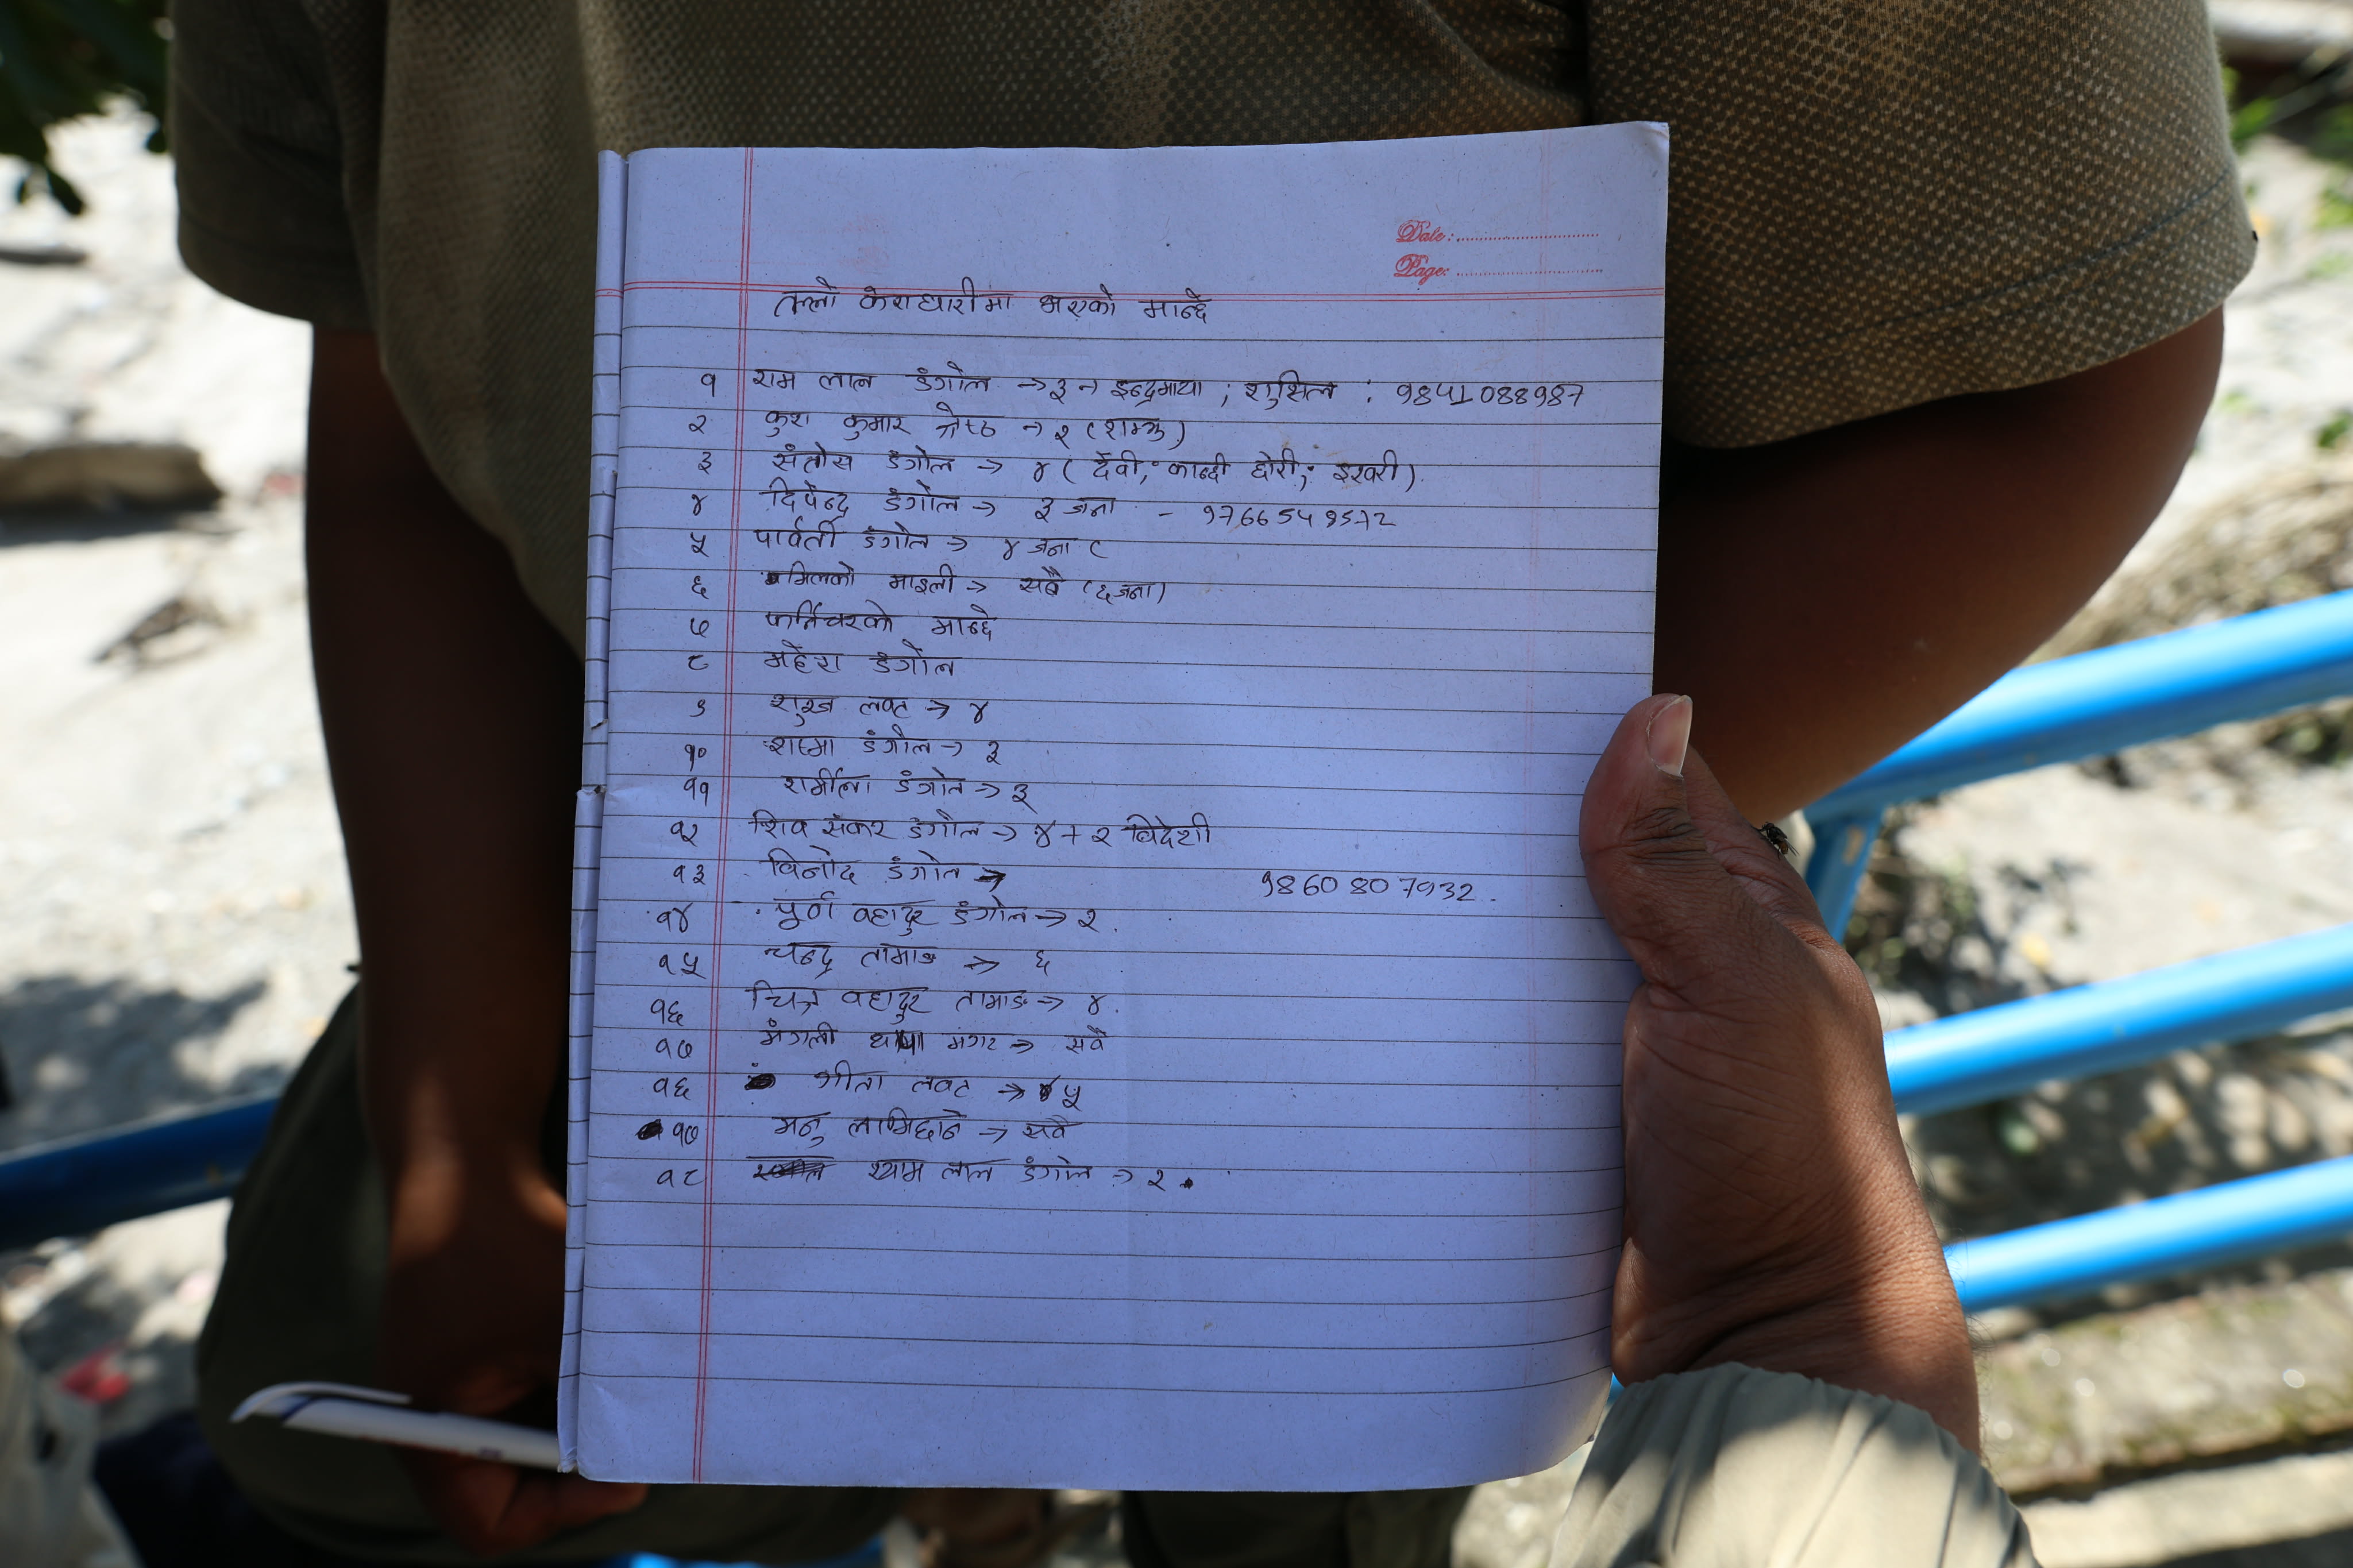 Date:
Page:
तल्लो केराघारीमा भएको मान्छे
१ राम लाल डंगोल → ३ → इन्द्रमाया ; शुसिल : 9841088987
२ कुश कुमार श्रेष्ठ → २ (शम्भु)
३ संतोस डंगोल → ४ ( देवी, कान्छी छोरी, इश्वरी)
४ दिपेन्द्र डंगोल → ३ जना - 9766549572
५ पार्वती डंगोल → ४ जना (
६ मिलको माइली → सबै (६ जना)
७ फर्निचरको मान्छे
८ महेश डंगोल
९ लवट → ४
१० डंगोल → ३
११ शर्मीला डंगोल → ३
१२ शिव संकर डंगोल → ४ + २ विदेशी
१३ विनोद डंगोल → 9860807932
१४ पुर्ण वहादुर डंगोल → २
१५ चन्द्र तामाङ → ६
१६ चित्र वहादुर तामाङ → ४
१७ मंगली थापा मगर → सवै
१६ गीता लवट → ५
१७ मनु लामिछाने → सवै
१८ श्याम लाल डंगोल → २